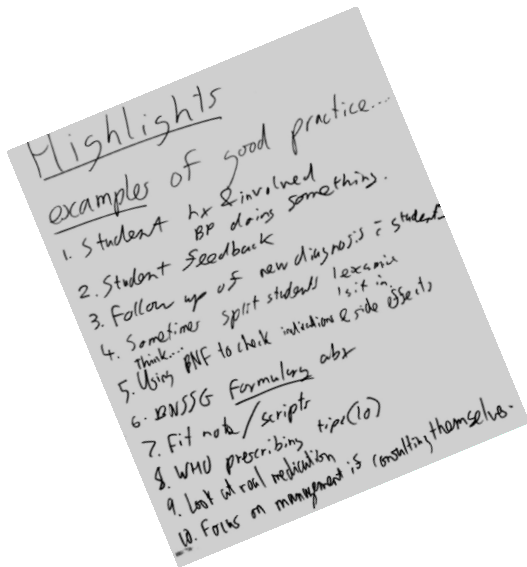 Highlights
examples of good practice...
1. Student hx & involved
BP doing something.
2. Student feedback
3. Follow up of new diagnosis c̄ student
4. Sometimes split students 1 examine
Think... 1 sit in.
5. Using BNF to check interactions & side effects
6. BNSSG Formulary abx
7. Fit note/scripts
8. WHO prescribing tips (10)
9. Look at real medication
10. Focus on management is consulting themselves.